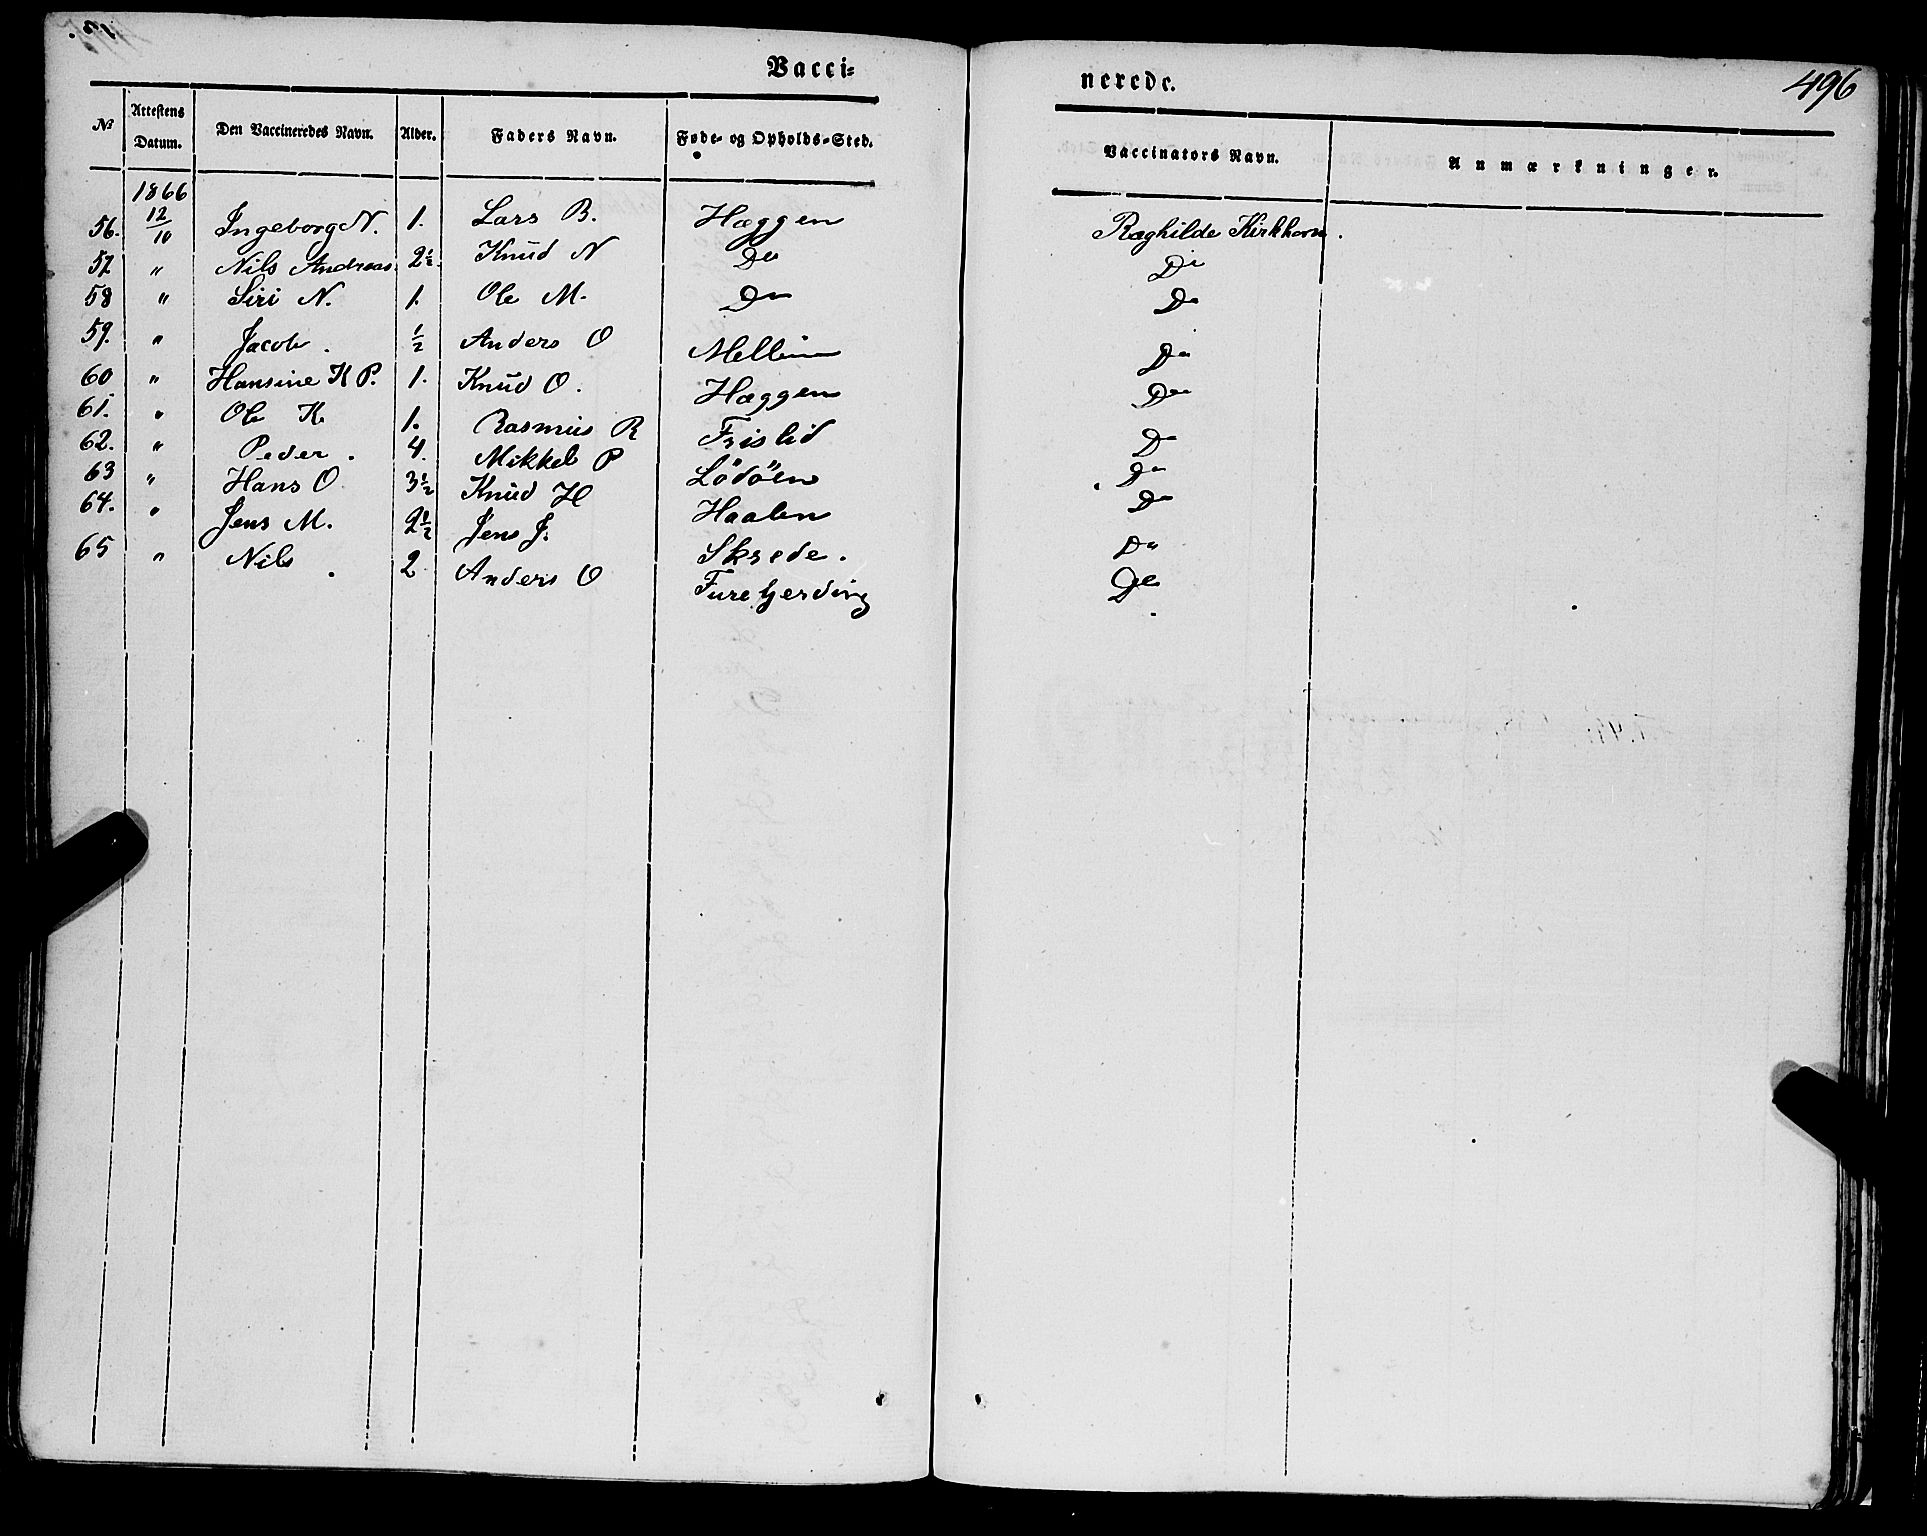 Vacci=
nerede.
496
No Attestens Datum. Den Vaccineredes Navn. Alder. Faders Navn. Føde- og Opholds-Sted. Vaccinators Navn. Anmærkninger.
1866
56. 12/10 Ingeborg N. 1. Lars B. Hæggen Raghilde Kirkhorn.
57 " Nils Andreas 2½ Knud N Do Do
58 " Siri N. 1. Ole M. Do Do
59. " Jacob. ½ Anders O Mellem Do
60 " Hansine K P. 1. Knud O. Hæggen Do
61. " Ole K 1. Rasmus R Frislid Do
62. " Peder. 4. Mikkel P Lödöen Do
63 " Hans O 3½ Knud H Haalen Do
64. " Jens M. 2½ Jens J. Skrede. Do
65 " Nils. 2 Anders O Furehjerding Do